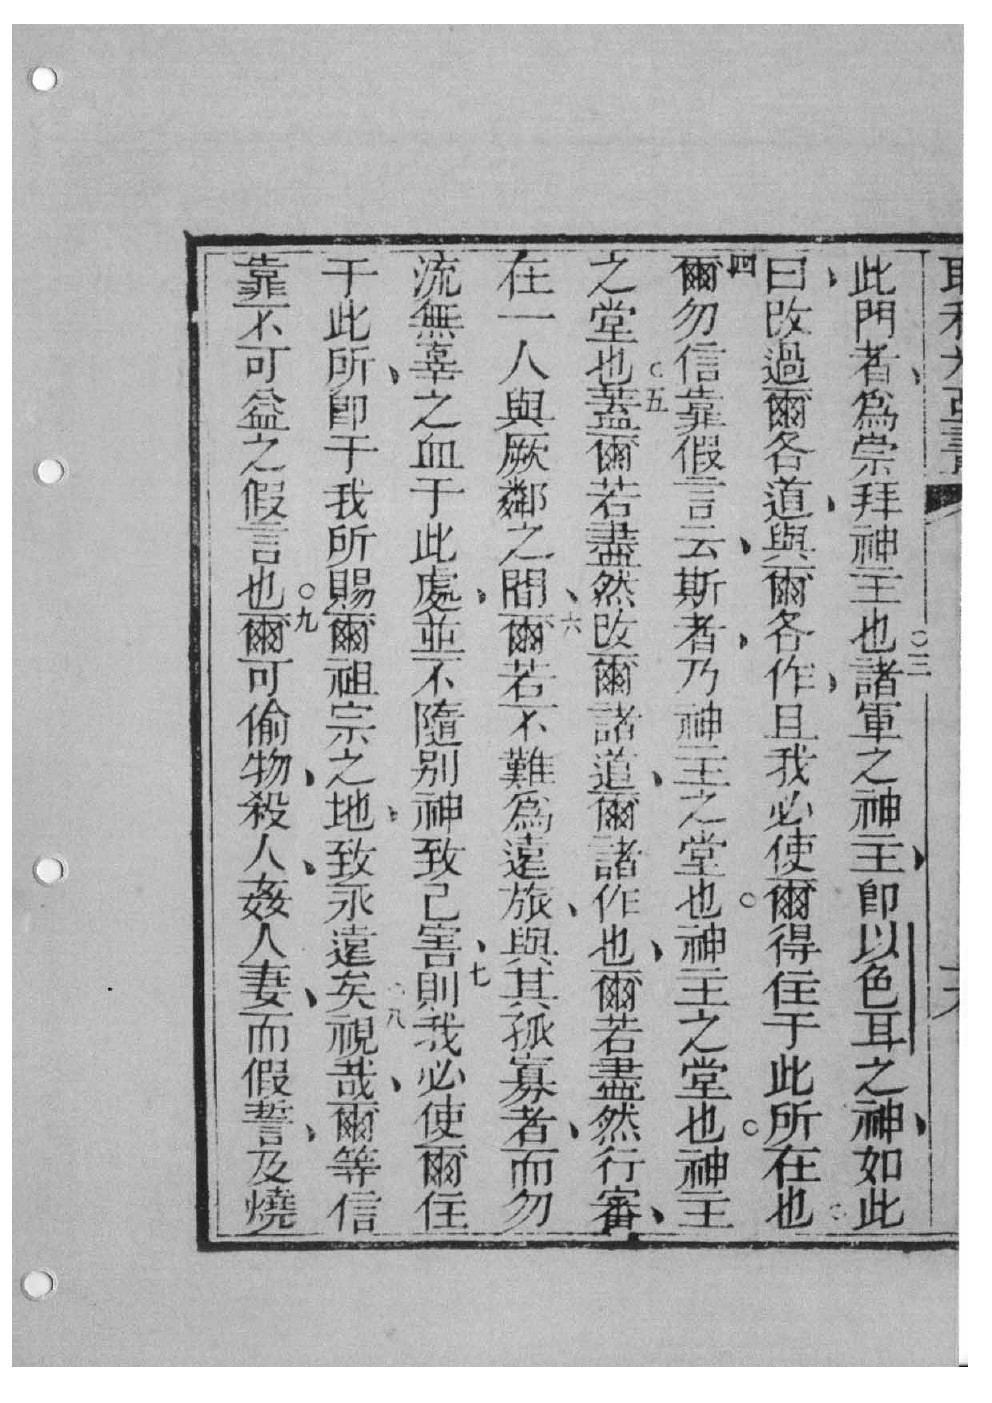 此門者、爲崇拜神主也○三諸軍之神主、即以色耳之神、如此
曰、改過爾各道、與爾各作、且我必使爾得住于此所在也○
四爾勿信靠假言云、斯者、乃神主之堂也○神主之堂也○神主
之堂也○五蓋爾若盡然改爾諸道、爾諸作也、爾若盡然行審、
在一人與厥鄰之間、六爾若不難爲遠旅、與其孤寡者、而勿
流無辜之血于此處、並不隨别神致己害、七則我必使爾住
于此所、卽于我所賜爾祖宗之地、致永遠矣○八視哉、爾等信
靠不可益之假言也○九爾可偷物、殺人、姦人妻、而假誓、及燒